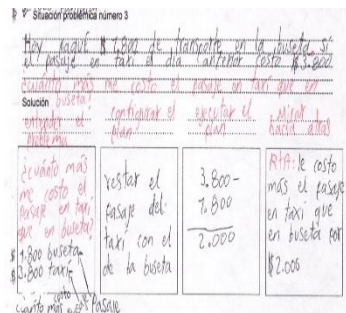 Situación problémica número 3
Hoy pagué $ 1.800 de transporte en la buseta si
el pasaje en taxi el día anterior costo $3.800
¿cuánto más me costo el pasaje en taxi que en
buseta?
Solución
entender el problema
configurar el plan
ejecutar el plan
Mirar hacia atras
¿cuánto más
me costo el
pasaje en taxi
que en buseta?
$ 1.800 buseta
$ 3.800 taxi
cuánto más costo el Pasaje
restar el
pasaje del
taxi con el
de la buseta
3.800-
1.800
2.000
RtA: le costo
más el pasaje
en taxi que
en buseta por
$2.000